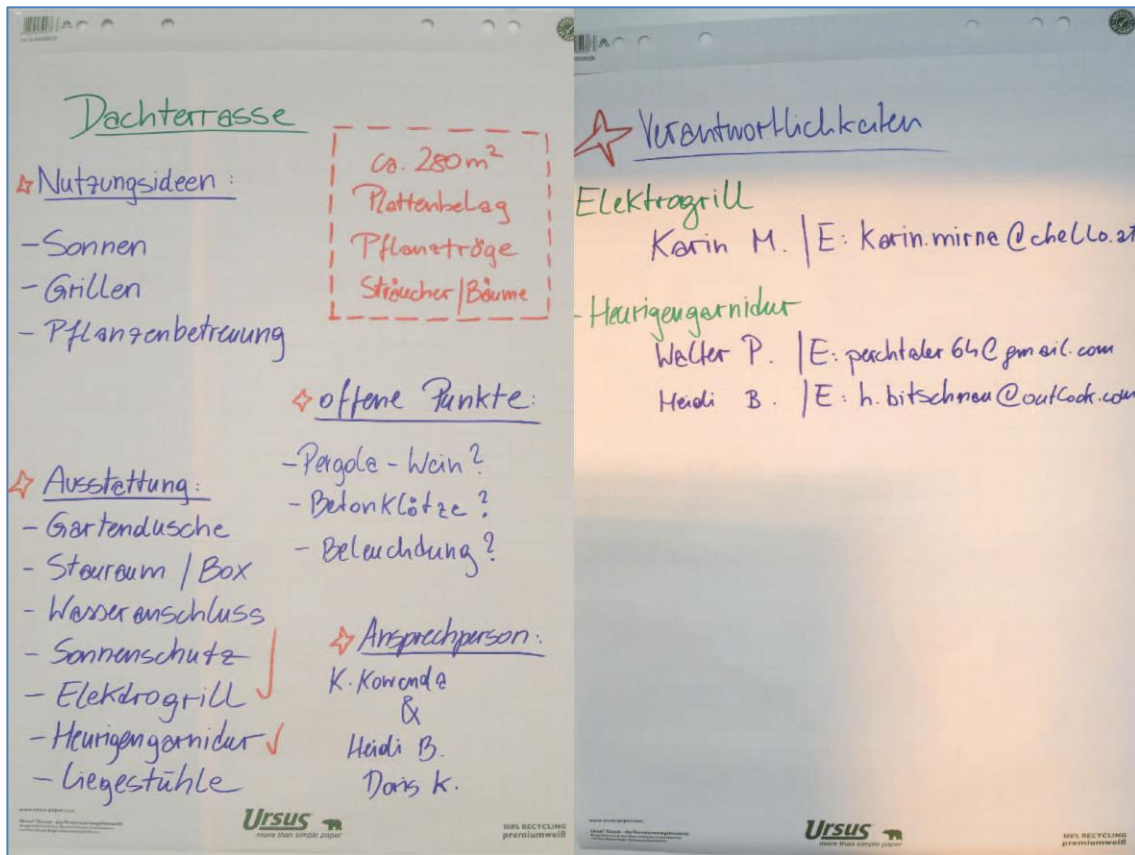 Dachterrasse
Nutzungsideen:
- Sonnen
- Grillen
- Pflanzenbetreuung
ca. 280 m²
Plattenbelag
Pflanztröge
Sträucher / Bäume
offene Punkte:
- Pergola - Wein?
- Betonklötze?
- Beleuchdung?
Ausstattung:
- Gartendusche
- Stauraum / Box
- Wasseranschluss
- Sonnenschutz
- Elektrogrill
- Heurigengarnidur
- Liegestühle
Ansprechperson:
K. Kowenda
&
Heidi B.
Doris K.
Ursus
more than simple paper
100% RECYCLING
premiumweiß
Verantwortlichkeiten
Elektrogrill
Karin M. | E: karin.mirna@chello.at
- Heurigengarnidur
Walter P. | E: perchtaler64@gmail.com
Heidi B. | E: h.bitschnau@outlook.com
Ursus
more than simple paper
100% RECYCLING
premiumweiß